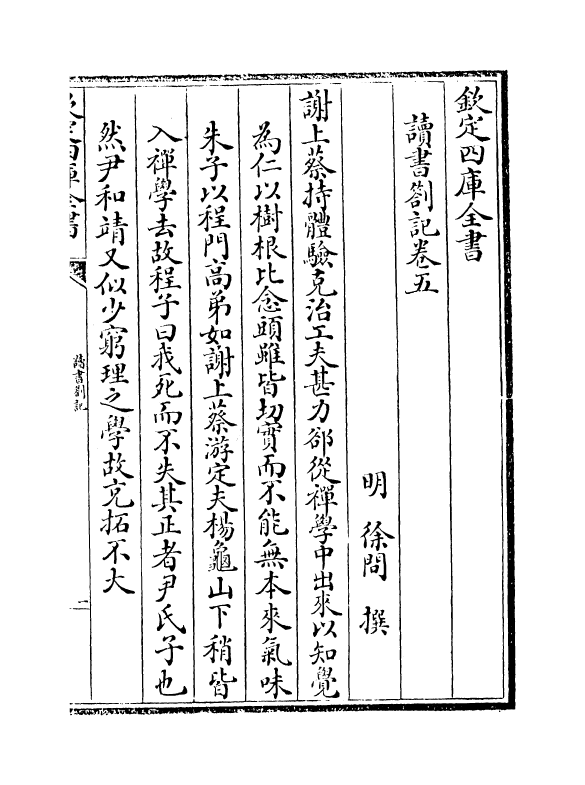 欽定四庫全書
讀書劄記卷五
明 徐問 撰
謝上蔡持體驗克治工夫甚力郤從禪學中出來以知覺
為仁以樹根比念頭雖皆切實而不能無本來氣味
朱子以程門高弟如謝上蔡游定夫楊龜山下稍皆
入禪學去故程子曰我死而不失其正者尹氏子也
然尹和靖又似少窮理之學故充拓不大
欽定四庫全書
讀書劄記
一